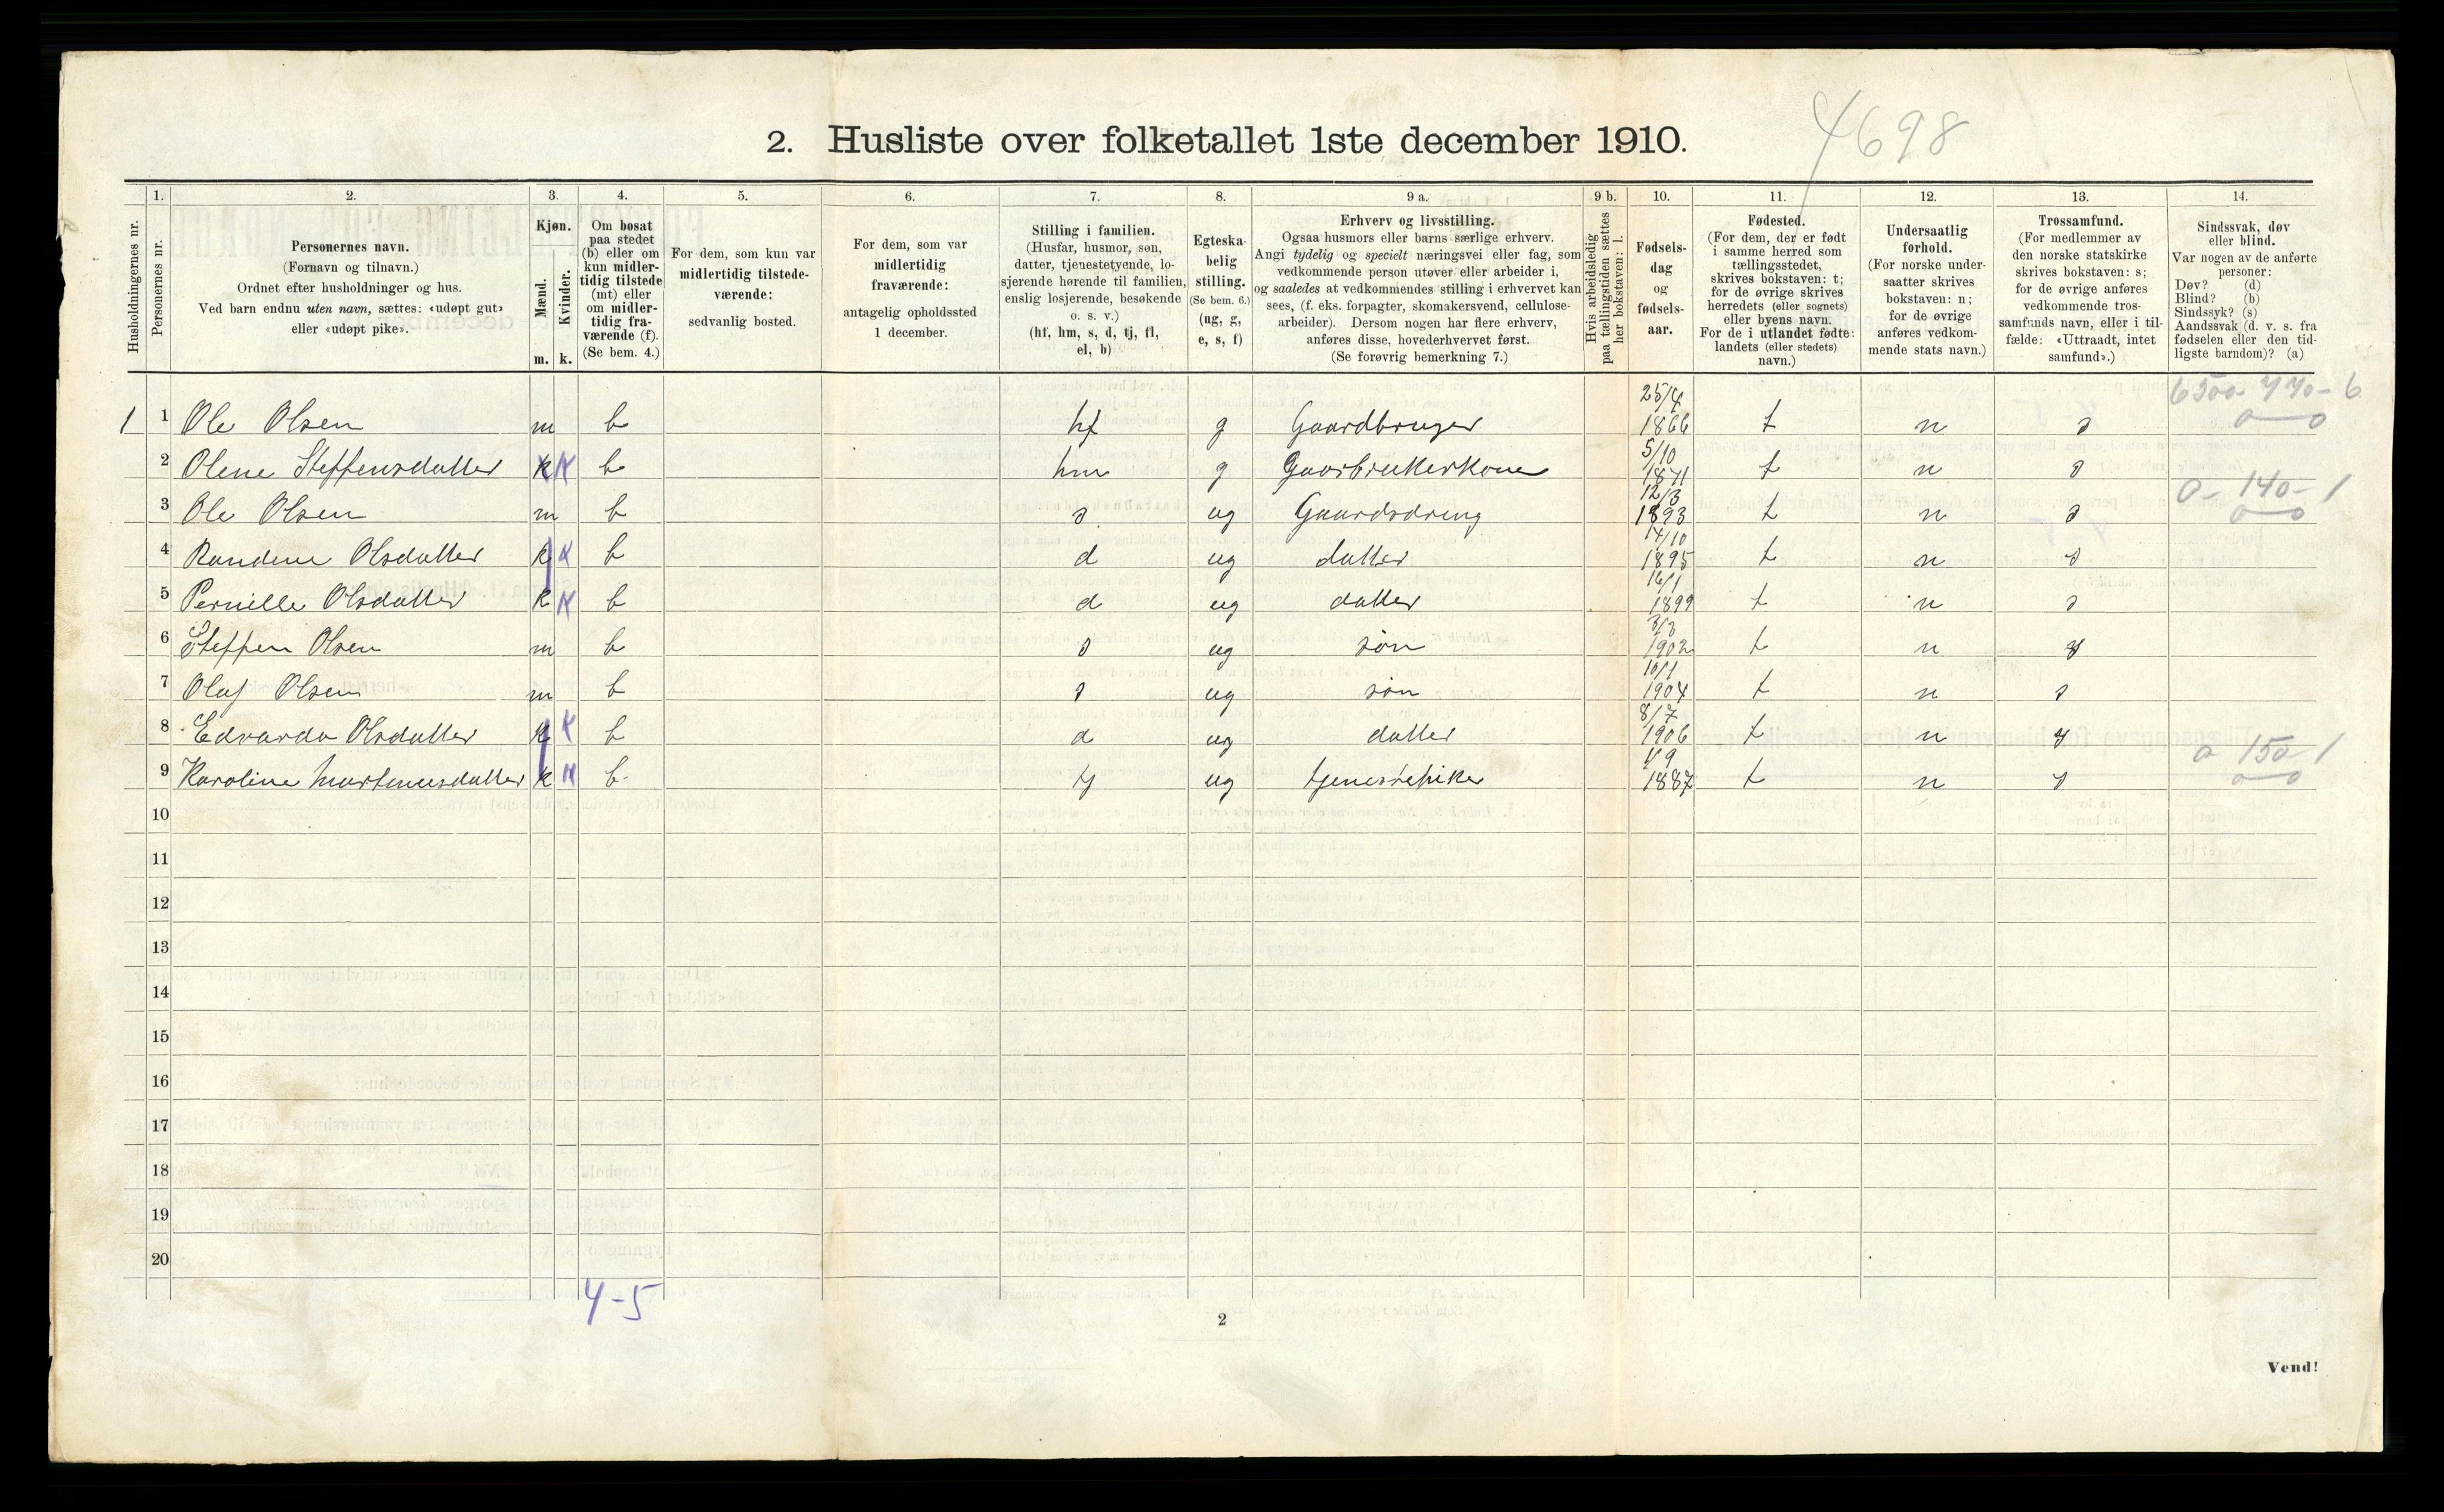 4698
2. Husliste over folketallet 1ste december 1910.
Husholdningernes nr.
1.
Personernes nr.
2.
Personernes navn.
(Fornavn og tilnavn.)
Ordnet efter husholdninger og hus.
Ved barn endnu uten navn, sættes: «udøpt gut»
eller «udøpt pike».
3.
Kjøn.
Mænd.
Kvinder.
m. k.
4.
Om bosat
paa stedet
(b) eller om
kun midler-
tidig tilstede
(mt) eller
om midler-
tidig fra-
værende (f).
(Se bem. 4.)
5.
For dem, som kun var
midlertidig tilstede-
værende:
sedvanlig bosted.
6.
For dem, som var
midlertidig
fraværende:
antagelig opholdssted
1 december.
7.
Stilling i familien.
(Husfar, husmor, søn,
datter, tjenestetyende, lo-
sjerende hørende til familien,
enslig losjerende, besøkende
o. s. v.)
(hf, hm, s, d, tj, fl,
el, b)
8.
Egteska-
belig
stilling.
(Se bem. 6.)
(ug, g,
e, s, f)
9 a.
Erhverv og livsstilling.
Ogsaa husmors eller barns særlige erhverv.
Angi tydelig og specielt næringsvei eller fag, som
vedkommende person utøver eller arbeider i,
og saaledes at vedkommendes stilling i erhvervet kan
sees, (f. eks. forpagter, skomakersvend, cellulose-
arbeider). Dersom nogen har flere erhverv,
anføres disse, hovederhvervet først.
(Se forøvrig bemerkning 7.)
9 b.
Hvis arbeidsledig
paa tællingstiden sættes
her bokstaven: l.
10.
Fødsels-
dag
og
fødsels-
aar.
11.
Fødested.
(For dem, der er født
i samme herred som
tællingsstedet,
skrives bokstaven: t;
for de øvrige skrives
herredets (eller sognets)
eller byens navn.
For de i utlandet fødte:
landets (eller stedets)
navn.)
12.
Undersaatlig
forhold.
(For norske under-
saatter skrives
bokstaven: n;
for de øvrige
anføres vedkom-
mende stats navn.)
13.
Trossamfund.
(For medlemmer av
den norske statskirke
skrives bokstaven: s;
for de øvrige anføres
vedkommende tros-
samfunds navn, eller i til-
fælde: «Uttraadt, intet
samfund».)
14.
Sindssvak, døv
eller blind.
Var nogen av de anførte
personer:
Døv? (d)
Blind? (b)
Sindssyk? (s)
Aandssvak (d. v. s. fra
fødselen eller den tid-
ligste barndom)? (a)
1 1 Ole Olsen m b hf g Gaardbruger 25/4 1866 t n s
2 Olene Steffensdatter k b hm g Gaarbrukerkone 5/10 1871 t n s
3 Ole Olsen m b s ug Gaardsdreng 12/3 1893 t n s 0- 140- 1
4 Randine Olsdatter k b d ug datter 14/10 1895 t n s
5 Pernille Olsdatter k b d ug datter 16/1 1899 t n s
6 Steffen Olsen m b s ug søn 3/3 1902 t n s
7 Olaf Olsen m b s ug søn 10/1 1904 t n s
8 Edvarda Olsdatter k b d ug datter 8/7 1906 t n s
9 Karoline Martineusdatter k b tj ug tjenestepike 1887 t n s 0 150- 1
10
11
12
13
14
15
16
17
18
19
20
4-5
2
Vend!